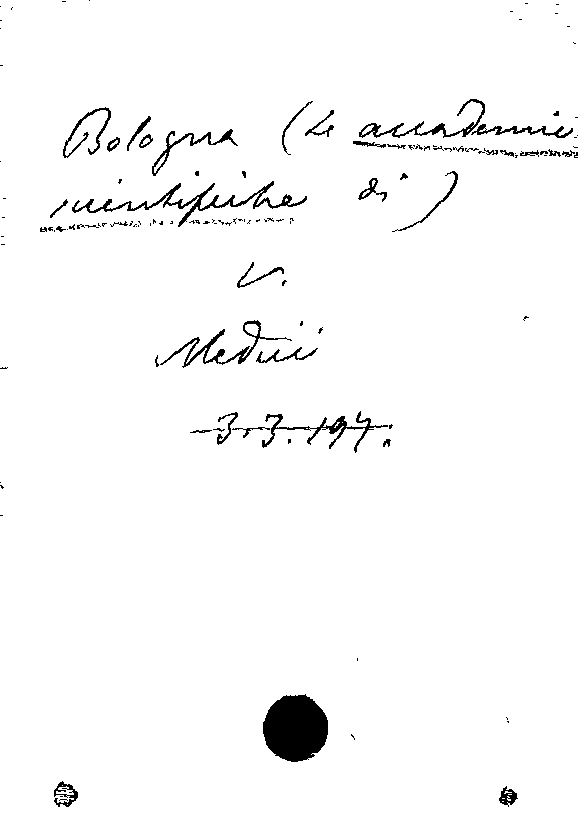 Bologna (Le accademie
scientifiche di)
V.
Medici
3.3.197.